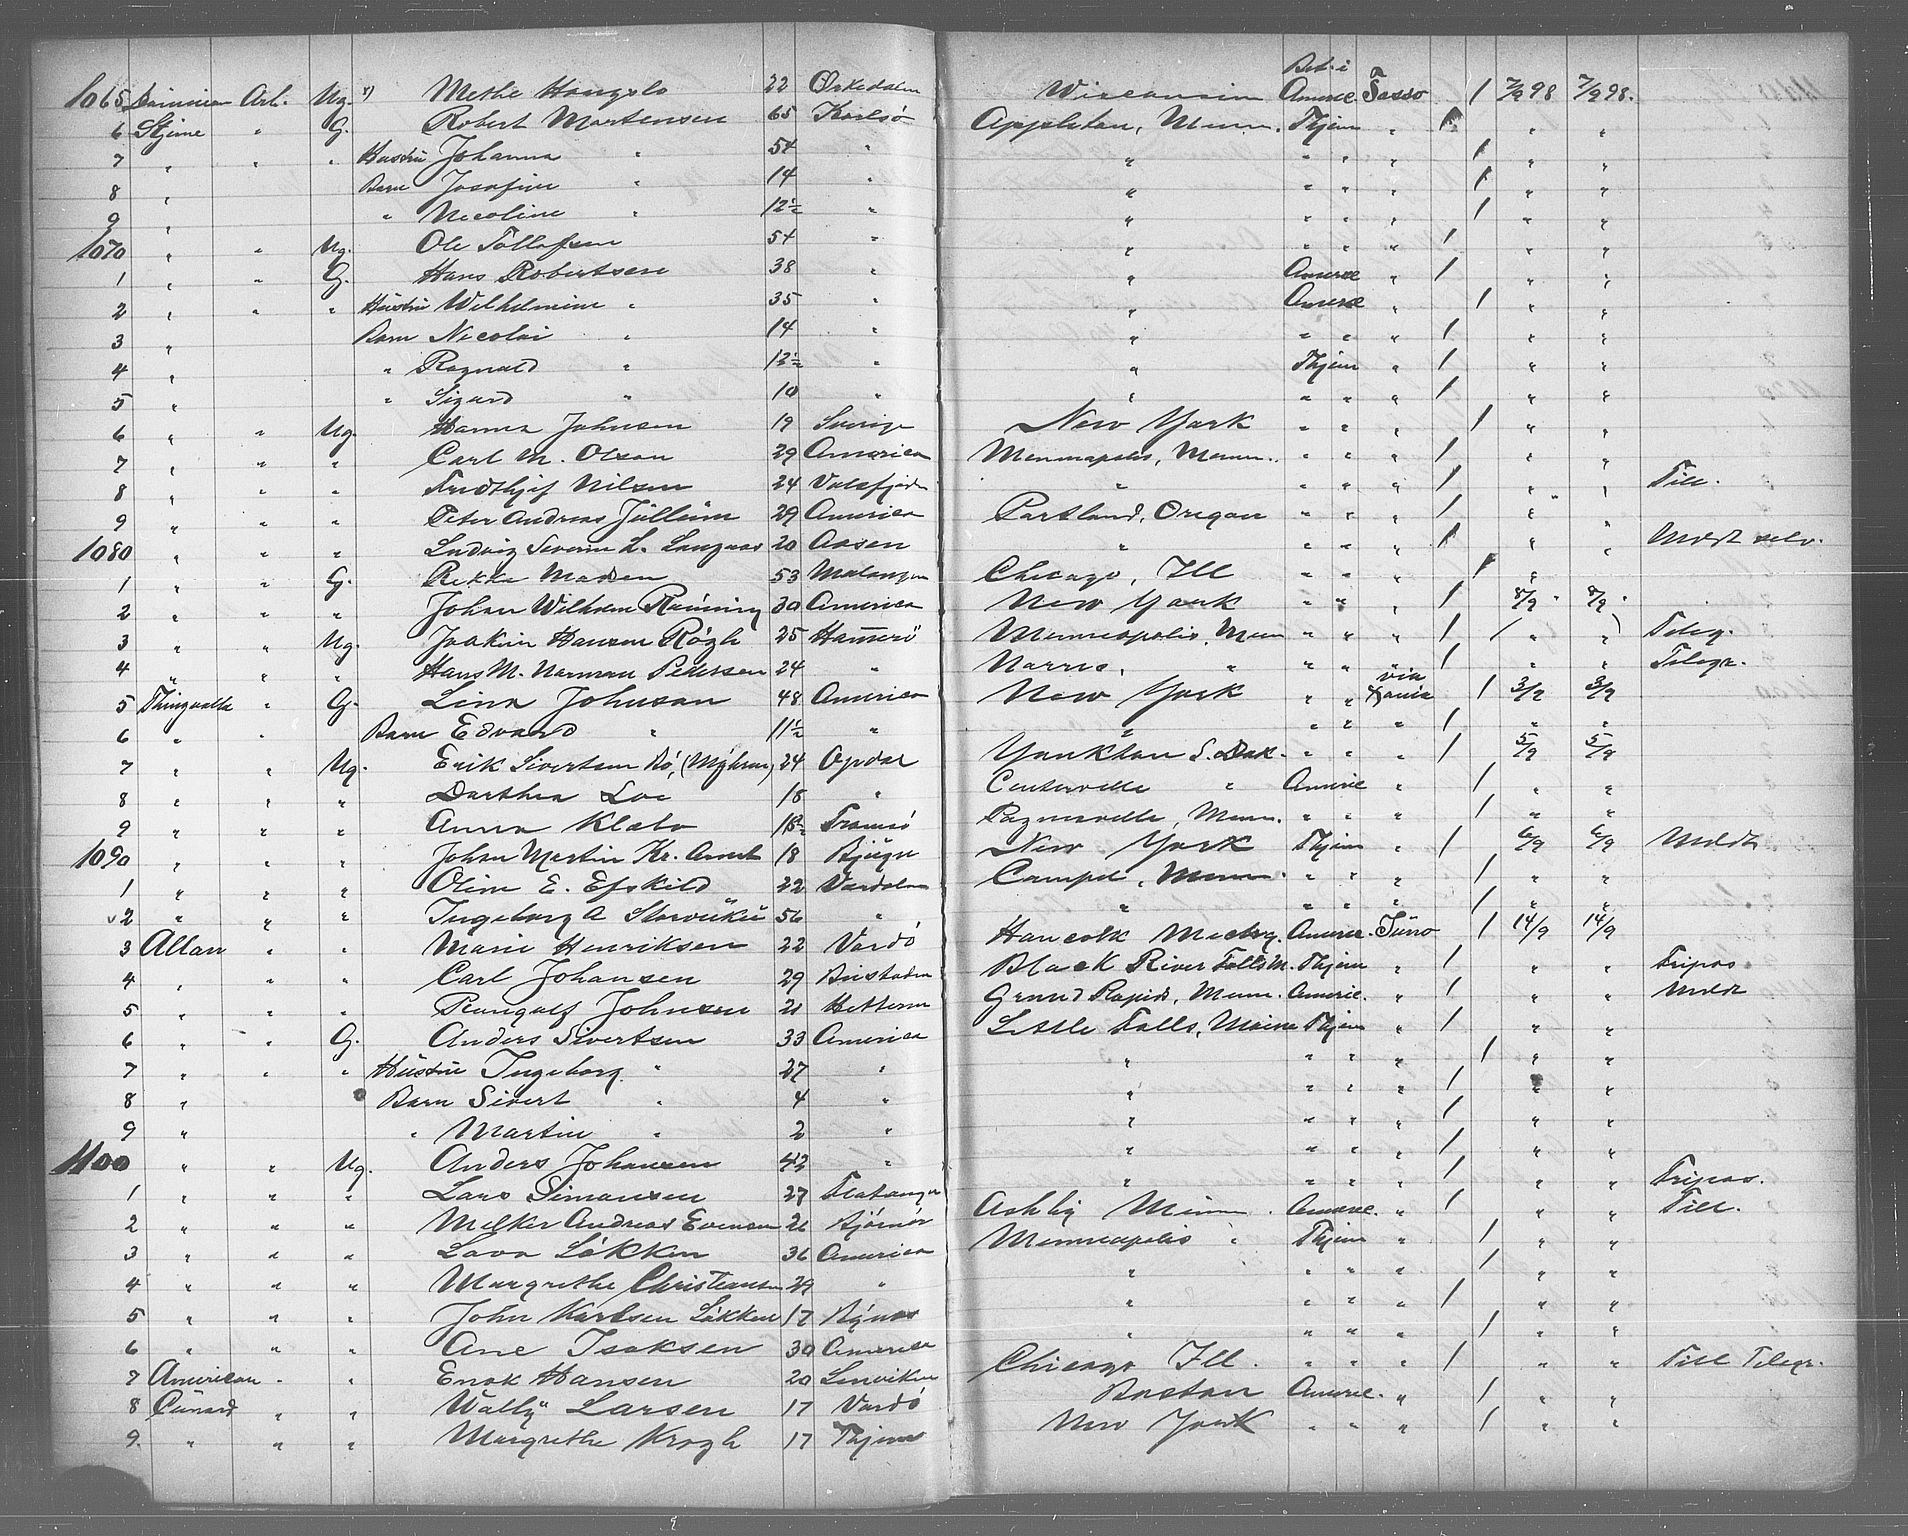 1065 Dominion Arb. Ug. Methe Haugslo 22 Orkedalen Wisconsin Bet. i Americ. Tasso 1 7/9 98 7/9 98.
6 Stjerne " G. Robert Martensen 65 Karlsö Appleton, Minn. Thjem " 1 " "
7 " " " Hustru Johanna " 54 " " " " " 1 " "
8 " Barn Josefine " 14 " " " " " 1 " "
9 " " Nicoline " 12½ " " " " " 1 " "
1070 " " Ug. Ole Tollefsen 54 " " " " " 1 " "
1 " " G. Hans Robertsen 38 " " Americ " 1 " "
2 " " " Hustru Wilhelmine " 35 " " Americ " 1 " "
3 " Barn Nicolai " 14 " " " " " 1 " "
4 " " Ragnald " 12½ " " Thjem " 1 " "
5 " " Sigurd " 10 " " " " " 1 " "
6 " " Ug. Hanna Johnsen 19 Sverige New York " " " 1 " "
7 " " " Carl M. Olsen 29 America Minneapolis, Minn. " " " 1 " "
8 " " " Fridthjof Nilsen 24 Valsfjorden " " " " 1 " " Till.
9 " " " Peter Andreas Jüllum 29 America Portland, Oregon " " " 1 " "
1080 " " " Ludvig Severin L. Langaas 20 Aasen " " " " 1 " " Meldt selv.
1 " " G. Rikka Madsen 53 Malangen Chicago, Ill " " " 1 "
2 " " " Johan Wilhelm Rönning 30 America New York " " " 1 8/9 " 8/9 "
3 " " Ug. Joakim Hansen Rögh 25 Hammerö Minneapolis, Minn " " " 1 " " Teleg.
4 " " " Hans M. Norman Pedersen 24 " Norris, " " " " 1 " " Telegr.
5 Thingvalla " G. Lina Johnson 48 America New York " " via Xania 1 3/9 3/9
6 " " Barn Edvard " 11½ " " " " " 1 " "
7 " " Ug. Erik Sivertsen Rö, (Myhren) 24 Opdal Yankton S. Dak. " " " 1 5/9 5/9
8 " " " Darthea Loe 18 " Centerville " Americ " 1 " "
9 " " " Anna Klabo Tromsö Paynesville, Minn. " " " 1 " "
1090 " " " Johan Martin Kr. Arnet 18 Bjügn New York Thjem " 1 6/9 6/9 Meldt
1 " " " Oline E. Efskild 22 Værdalen Campel, Minn. " " " 1 " "
2 " " " Ingeborg A Storvükü 56 " " " " " 1 " "
3 Allan " " Marie Henriksen 22 Vardö Hancock Michg. Americ. Jüno 1 14/9 14/9
4 " " " Carl Johansen 29 Black River Falls M. Thjem " 1 " " Tripos
5 " " " Rangolf Johnsen 21 Hitteren Grand Rapids, Minn. Americ. " 1 " " Meldt
6 " " G. Anders Sivertsen 33 America Little Falls, Maine Thjem " 1 " "
7 " " " Hüstru Ingeborg " 27 " " " " " 1 " "
8 " Barn Sivert " 4 " " " " " 1 " "
9 " " Martin " 2 " " " " " 1 " "
1100 " " Ug. Anders Johansen 42 " " " " " 1 " "
1 " " " Lars Simonsen 27 Flatanger " " " " 1 " " Tripos.
2 " " " Melker Andreas Evensen 21 Björnör Ashby Minn. Americ. " 1 " " Till.
3 " " " Lava Lökken 36 America Minneapolis " Thjem " 1 " "
4 " " " Margrethe Christiansen 29 " " " " " 1 " "
5 " " " John Karlsen Lökken 17 Bynes " " " " 1 " "
6 " " " Ane Isaksen 30 America " " " " 1 " "
7 American " " Enok Hansen 20 Lenviken Chicago Ill. " " " 1 " " Till Telegr.
8 Cünard " " Wally Larsen 17 Vardö Boston Americ. " 1 " "
9. " " " Margrethe Krogh 17 Thjem New York " " " 1 " "